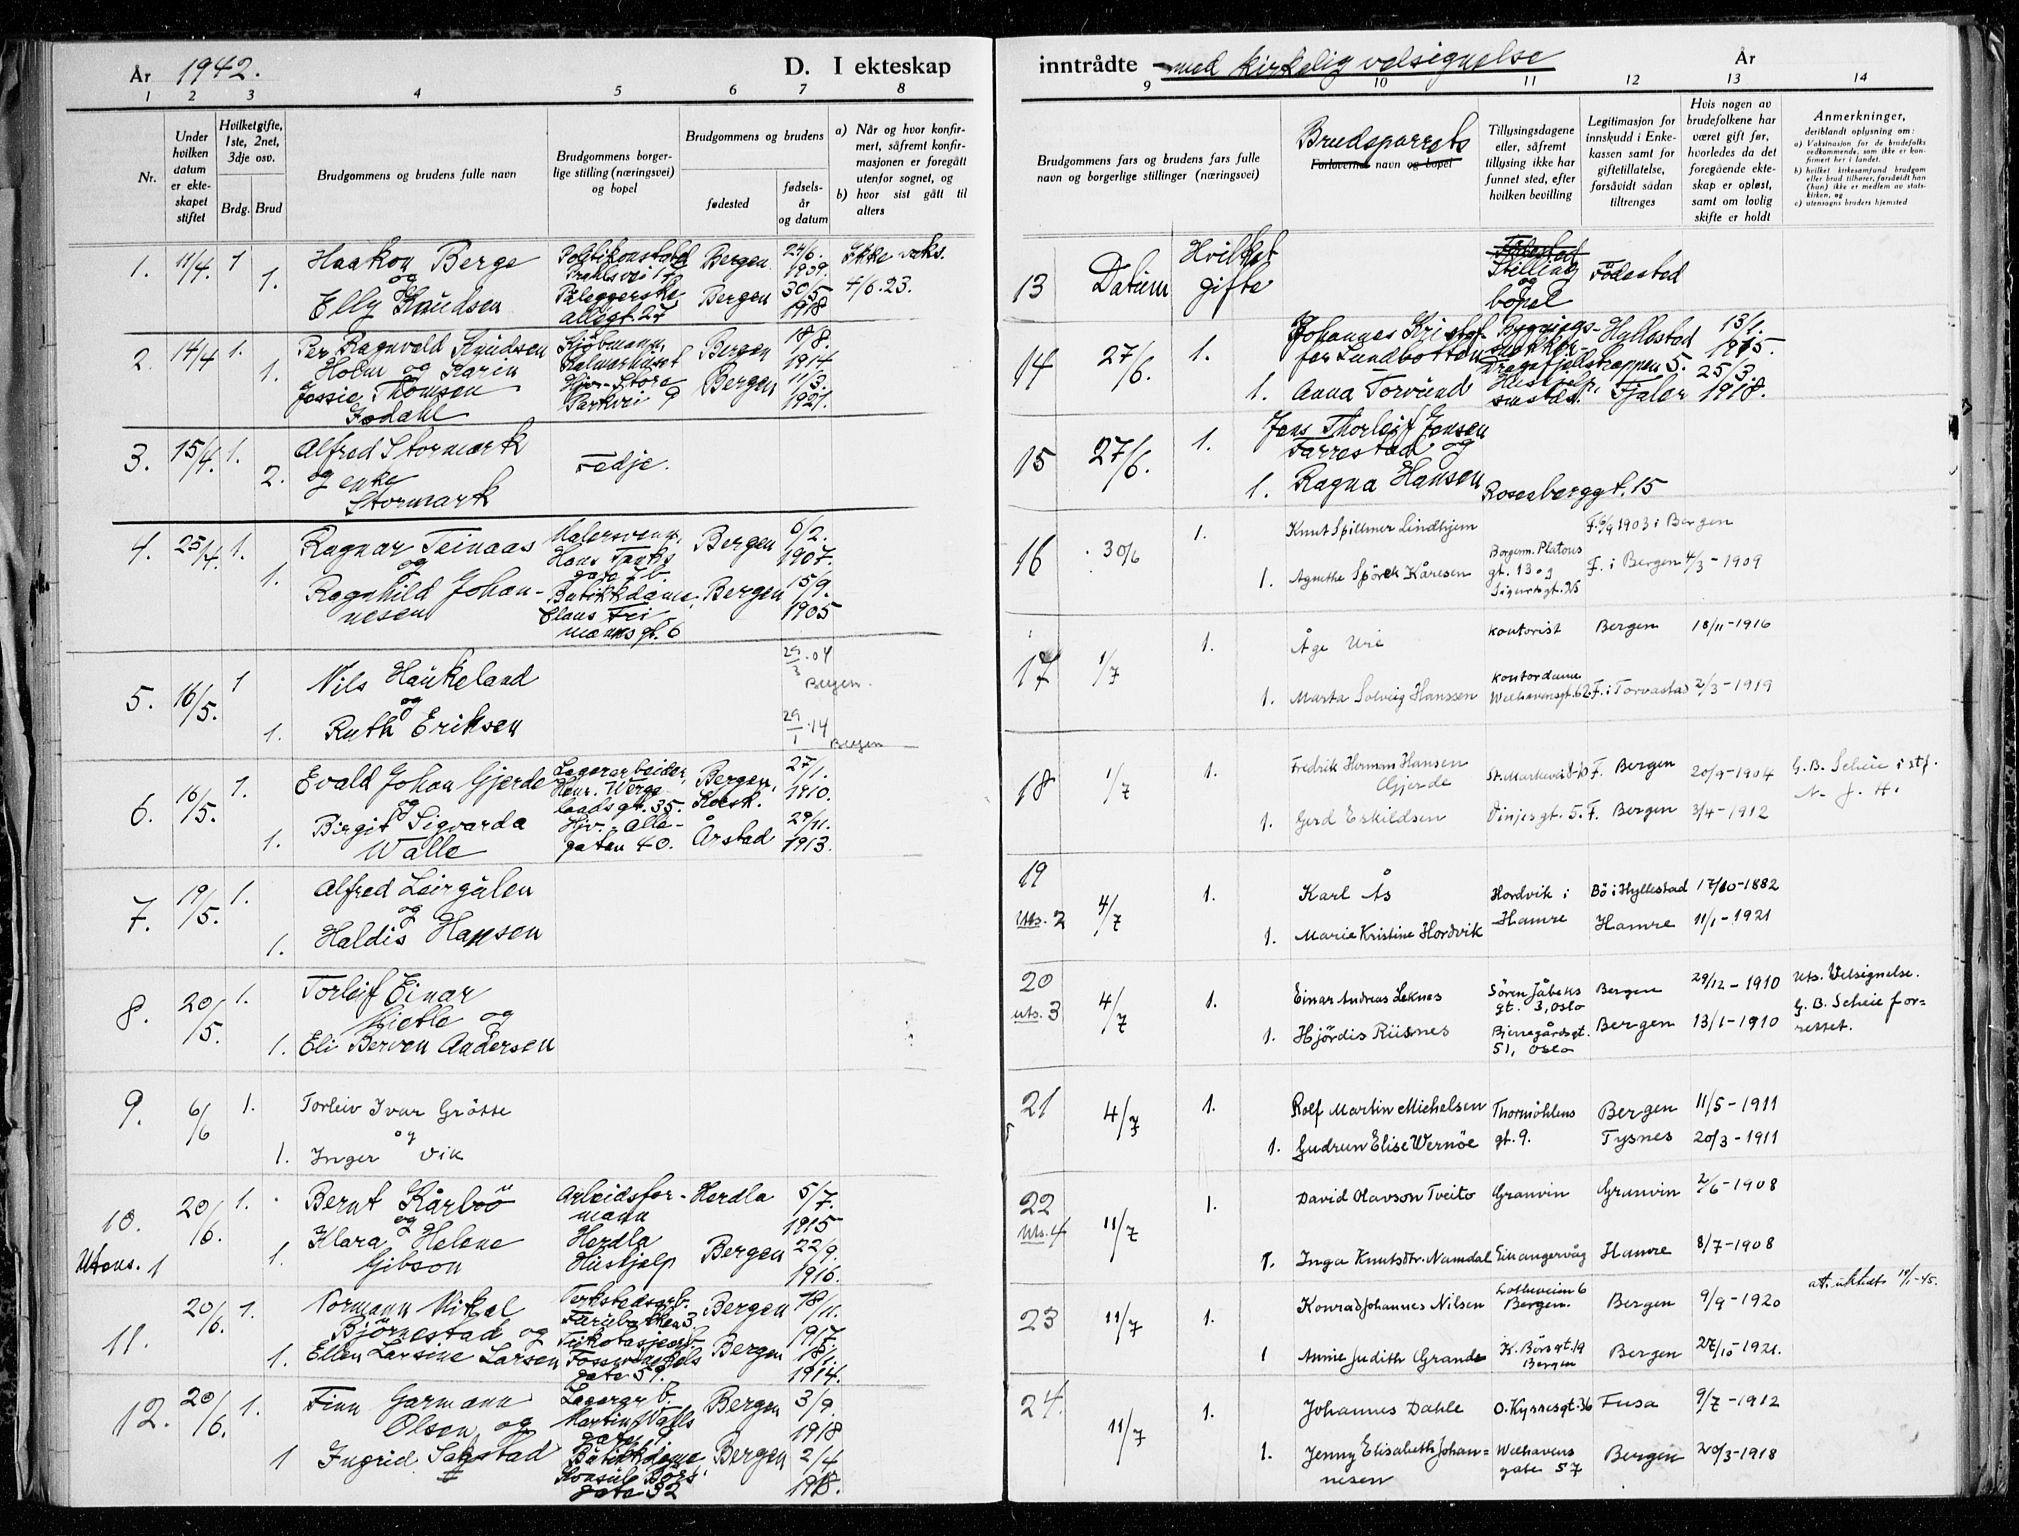 År 1942.
D. I ekteskap
1 2 3 4 5 6 7 8
Nr.
Under hvilken datum er ekteskapet stiftet
Hvilket gifte, 1ste, 2net, 3dje osv.
Brdg. Brud
Brudgommens og brudens fulle navn
Brudgommens borgerlige stilling (næringsvei) og bopel
Brudgommens og brudens
fødested
fødselsår og datum
a) Når og hvor konfirmert, såfremt konfirmasjonen er foregått utenfor sognet, og
b) hvor sist gått til alters
1. 11/4. 1 Haakon Berge Bergen 24/6. 1909. Ikke vaks.
og
1. Elly Knudsen Bergen 30/5 1918 4/6.23.
Allegt. 27
2. 14/4 1. Per Ragnvald Knudsen Kjøbmann. Bergen 18/8. 1914
1. Holm og Karin Kalmarhuset
Jessie Thomsen Hjv. Store Bergen 11/3. 1921.
Fodahl Parkvei 9
3. 15/4. 1. Alfred Stormark
2. og enke Fedje.
Stormark
4. 25/4. 1. Ragnar Teinaas Malersvenn. Bergen 6/2. 1907.
og Hans Tanks gate 7 b.
1. Ragnhild Johannesen Butikkdame, Bergen 15/9. 1905
Claus Frimannsgt. 6
5. 16/5. 1 Nils Haukeland 29/3.04 Bergen.
og
1. Ruth Eriksen 29/1.14 Bergen
6. 16/5. 1. Evald Johan Gjerde Lagerarbeider, Bergen, 27/1. 1910.
og Henr. Wergelandsgt. 35. Korsk.
1. Birgit Sigvarda Hjv. Allegaten 40. Årstad 29/11. 1913.
Walle
7. 19/5. 1. Alfred Leirgulen
og
1. Haldis Hansen
8. 20/5. 1. Torleif Einar
Kjetle og
1. Eli Berven Andersen
9. 6/6 1. Torleiv Ivar Grötte
og
1. Inger Vik
10. 20/6. 1. Bernt Kårbö Arbeidsformann Herdla 5/7. 1915
og Herdla
Utens. 1 1. Klara Helene Hushjelp Bergen 22/9. 1916.
Gibson
11. 20/6. 1. Normann Mikal Verkstedsarb. Bergen 18/11. 1917.
Björnestad og
1. Ellen Larsine Larsen Trikotasjearb. Bergen 18/1. 1914.
Fosswinckels gate 57.
12. 20/6. 1. Finn Garmann Lagerarb. Bergen 3/9. 1918
Olsen og
1 Ingrid Sagstad Butikkdame Bergen 2/4 1918.
Konsul Børs gate 32
inntrådte med kirkelig velsignelse År
9 10 11 12 13 14
Brudgommens fars og brudens fars fulle navn og borgerlige stillinger (næringsvei)
Brudeparrets
Forlovernes navn og bopel
Tillysingsdagene eller, såfremt tillysing ikke har funnet sted, efter hvilken bevilling
Legitimasjon for innskudd i Enkekassen samt for giftetillatelse, forsåvidt sådan tiltrenges
Hvis nogen av brudefolkene har været gift før, hvorledes da det foregående ekteskap er opløst, samt om lovlig skifte er holdt
Anmerkninger,
deriblandt oplysning om:
a) Vaksinasjon for de brudefolks vedkommende, som ikke er konfirmert her i landet.
b) hvilket kirkesamfund brudgom eller brud tilhører, forsåvidt han (hun) ikke er medlem av statskirken, og
c) utensogns bruders hjemsted
13 Datum Hvilket gifte Fødested Stilling og bopel Födested
14 27/6. 1. Johannes Kristoffer Lundbotten Hyllestad 13/1. 1915.
1. Anna Torvund Fjaler 25/3. 1918.
15 27/6. 1. Jens Thorleif Jensen
Farrestad og
1. Ragna Hansen Rosenberggt. 15
16 30/6 1. Knut Spillmer Lindhjem F. 9/9 1903 i Bergen
1. Agnethe Spörck Kåresen Borgerm. Platous gt. 13 og Sigurdsgt. 25 F. i Bergen 4/3-1909
17 1/7 1. Åge Urie kontorist Bergen 18/11-1916
1. Marta Solveig Hanssen kontordame Welhavensgt. 62. F. i Torvastad 2/3-1919
18 1/7 1. Fredrik Herman Hansen Gjerde St. Markevei 8-10 F. Bergen 20/9-1904 G. B. Scheie i stf. N. J. H.
1. Gerd Eskildsen Vinjesgt. 5. F. Bergen 3/4-1912
19 Uts. 2 4/7 1. Karl Ås Hordvik i Hamre Bö i Hyllestad 17/10-1882
1. Marie Kristine Hordvik Hamre 11/1-1921
20 uts. 3 4/7 1. Einar Andreas Leknes Sören Jåbeks gt. 3, Oslo Bergen 29/12-1910 Uts. Velsignelse. G. B. Scheie forrettet.
1. Hjördis Riisnes Bjerregårdsgt. 51, Oslo Bergen 13/1-1910
21 4/7 1. Rolf Martin Michelsen Thormöhlens gt. 9. Bergen 11/5-1911
1. Gudrun Elise Wernöe Tysnes 20/3-1911
22 Uts. 4 11/7 1. David Olavson Tveito Granvin Granvin 2/6-1908
1. Inga Knutsdtr. Namdal Einangervåg Hamre 8/7-1908
23 11/7 1. Konrad Johannes Nilsen Lotheveien 6 Bergen. Bergen 9/9-1920
1 Annie Judith Grande K. Börsgt. 19 Bergen Bergen 27/10-1921.
24. 11/7 1. Johannes Dahle O. Kyrresgt. 36 Fusa 9/7-1912
1. Jenny Elisabeth Johannesen Welhavens gate 57 Bergen 20/3-1918